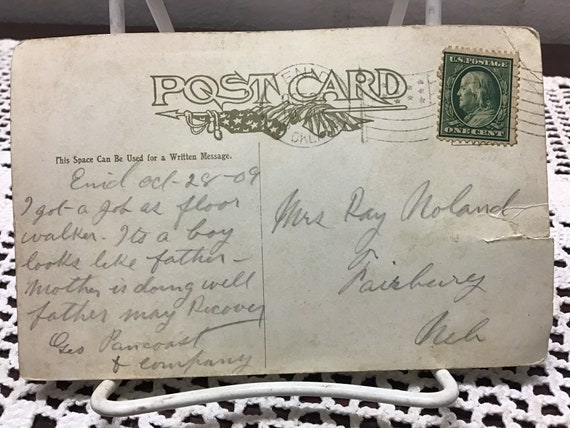 POST CARD
U.S. POSTAGE
ONE CENT
ENID
OKLA
This Space Can Be Used for a Written Message.
Enid Oct-28-09
I got a job as floor
walker. Its a boy
looks like father-
Mother is doing well
father may Recover
Geo Pancoast
& Company
Mrs Ray Noland
Fairbury
Neb